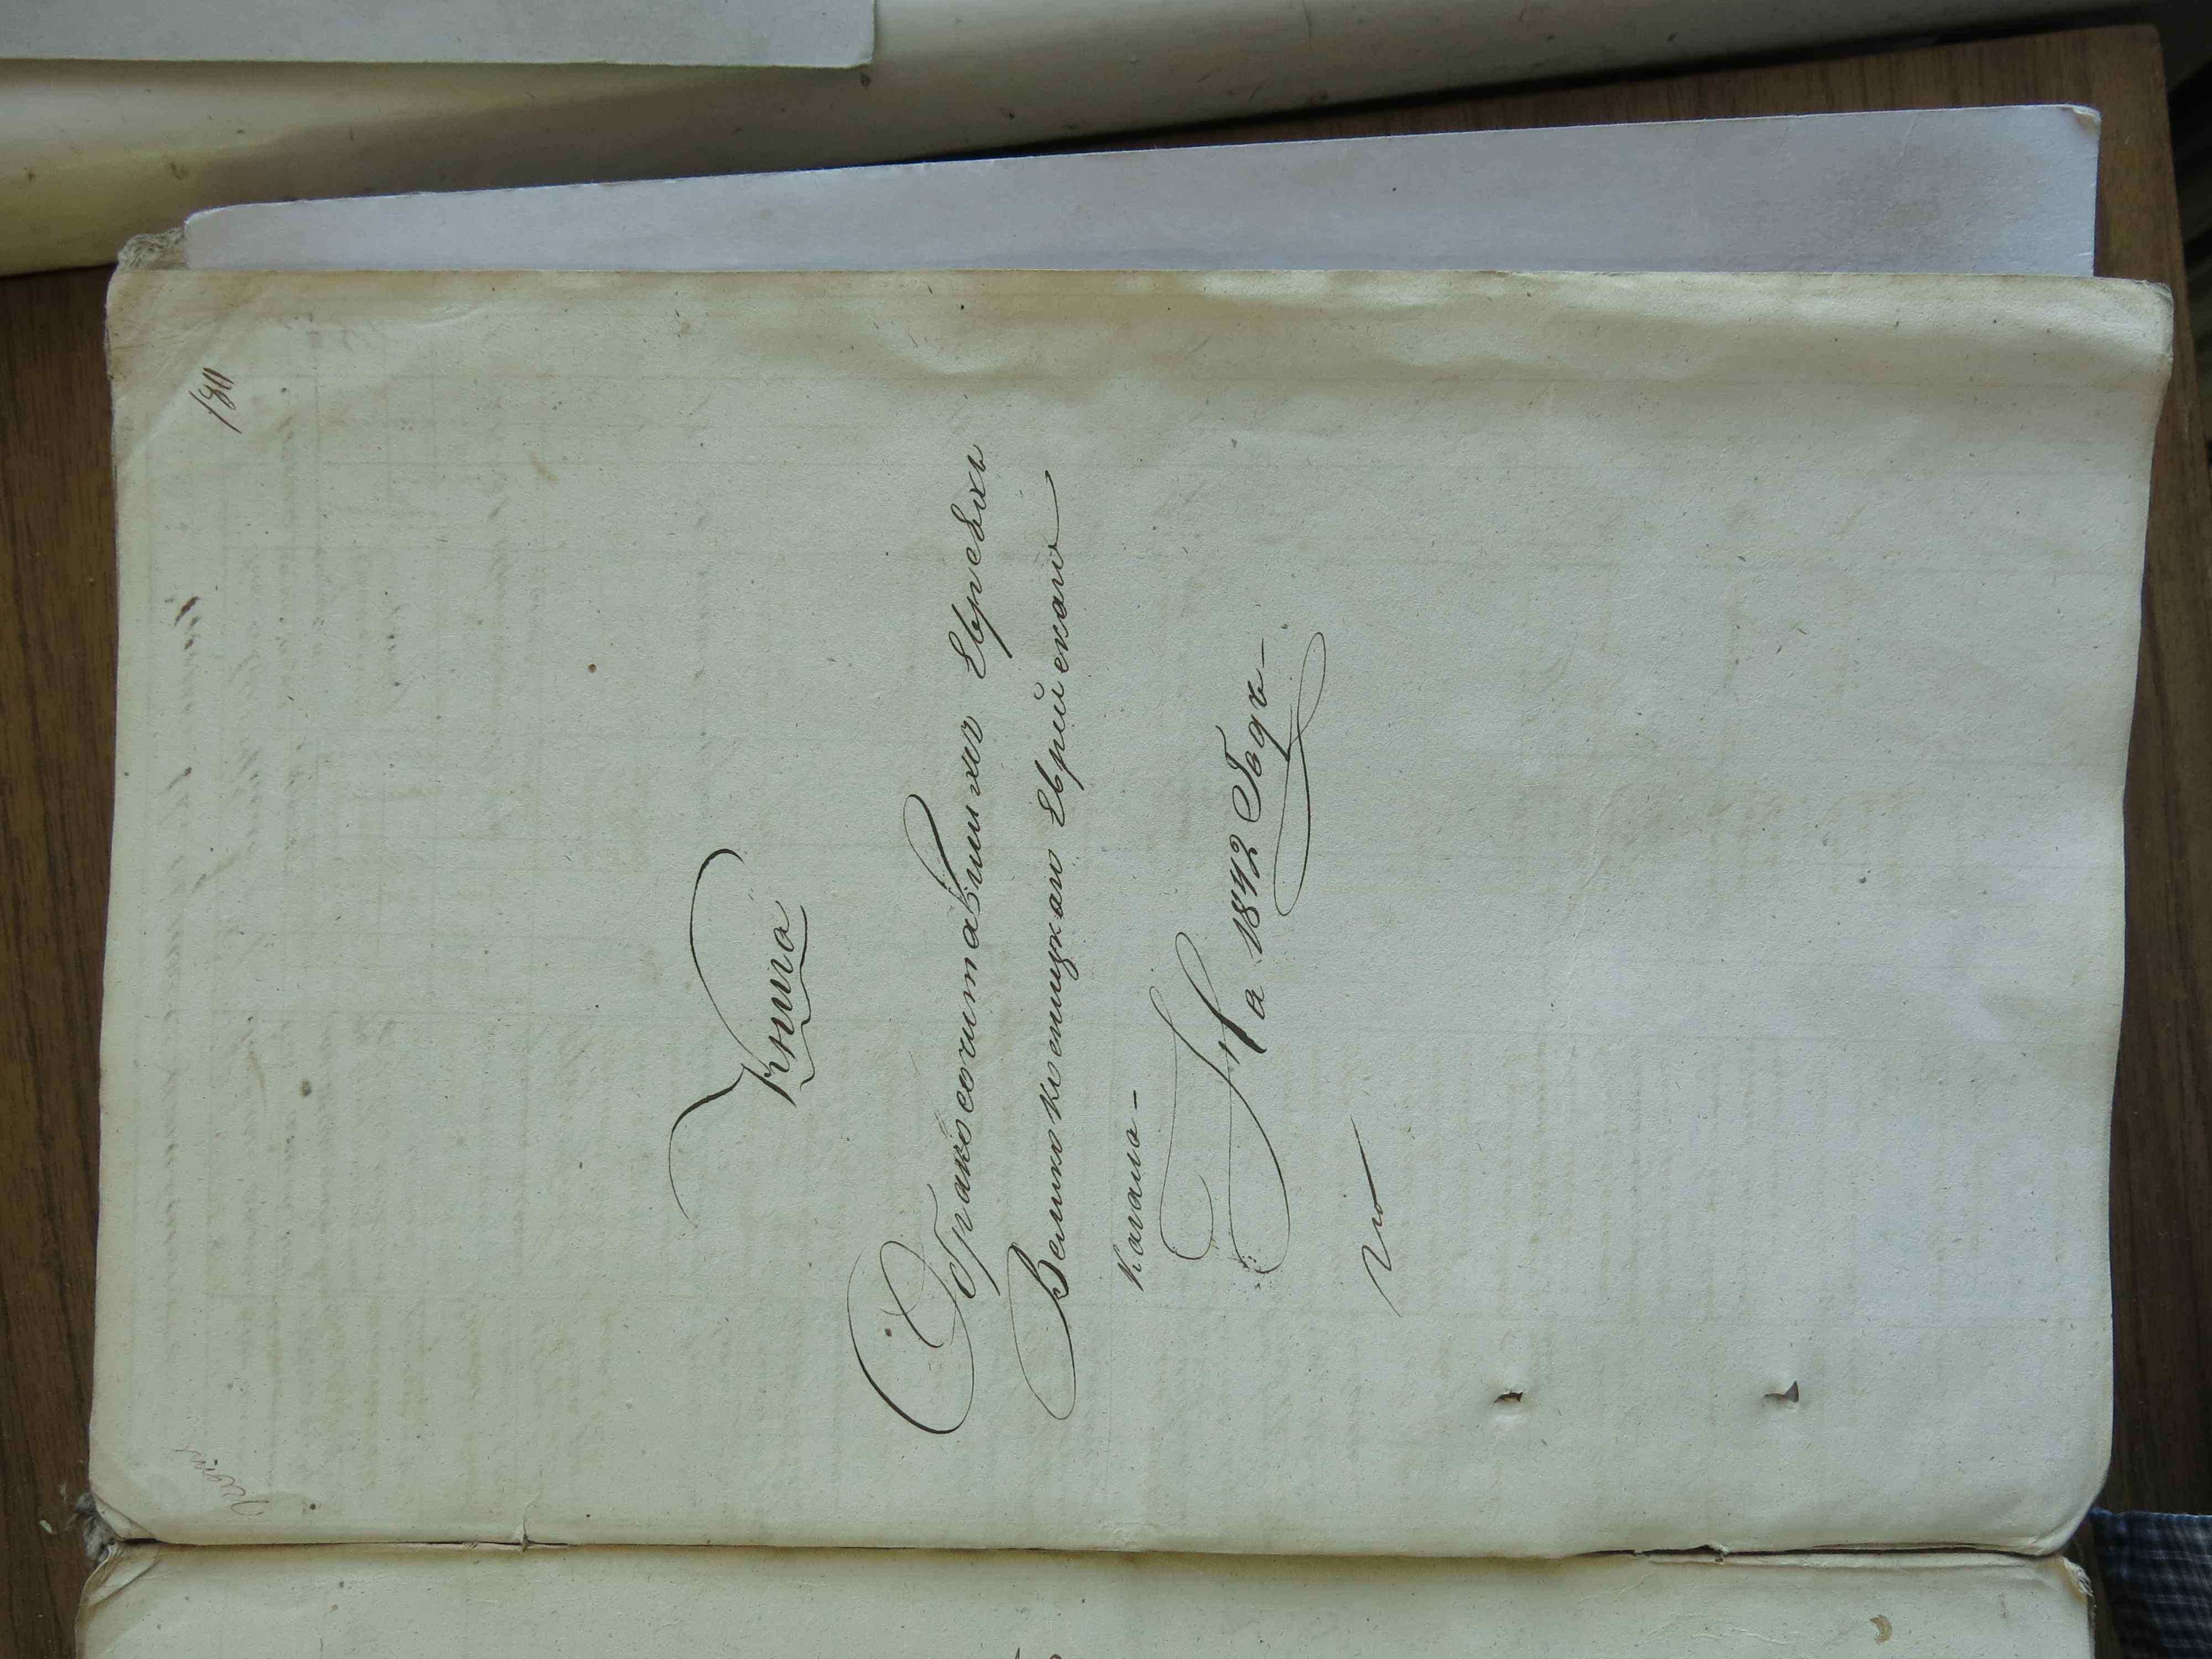 180
Книга
О бракосочитавшихся Евреяхъ
Великокошицкаго Еврейскаго
Кагала -
На 1842 Годъ -